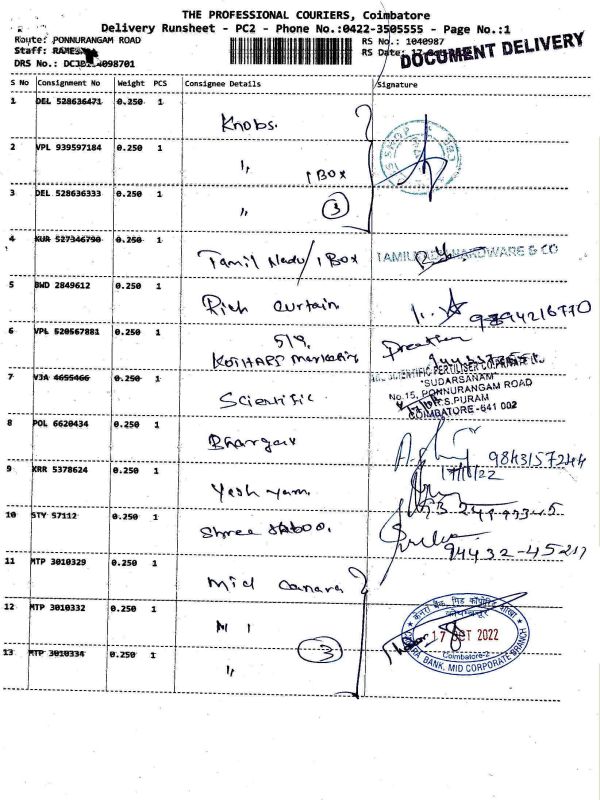 THE PROFESSIONAL COURIERS, Coimbatore
Delivery Runsheet - PC2 - Phone No.:0422-3505555 - Page No.:1
Route: PONNURANGAM ROAD
RS No.: 1040987
Staff: RAMESH
RS Date:
DOCUMENT DELIVERY
DRS No.:
S No Consignment No Weight PCS Consignee Details Signature
1 DEL 528636471 0.250 1 Knobs.
2 VPL 939597184 0.250 1 " 1 BOX
3 DEL 528636333 0.250 1 " 3
4 KUR 527346790 0.250 1 Tamil Nadu / 1 Box
HARDWARE & CO
5 BWD 2849612 0.250 1 Rich Curtain
9894216770
6 VPL 520567881 0.250 1 KOTHARI Marketing
7 VJA 4655466 0.250 1 Scientific
SCIENTIFIC FERTILISER CO.PRIVATE
"SUDARSANAM"
No.15, PONNURANGAM ROAD
R.S.PURAM
COIMBATORE-641 002
8 POL 6620434 0.250 1 Bhargav
9843157244
9 KRR 5378624 0.250 1 Yesh yam.
10 STY 57112 0.250 1 Shree
11 MTP 3010329 0.250 1 Mid Canara
12 MTP 3010332 0.250 1
17 OCT 2022
Coimbatore-2
BANK, MID CORPORATE BRANCH
13 MTP 3010334 0.250 1 " 3